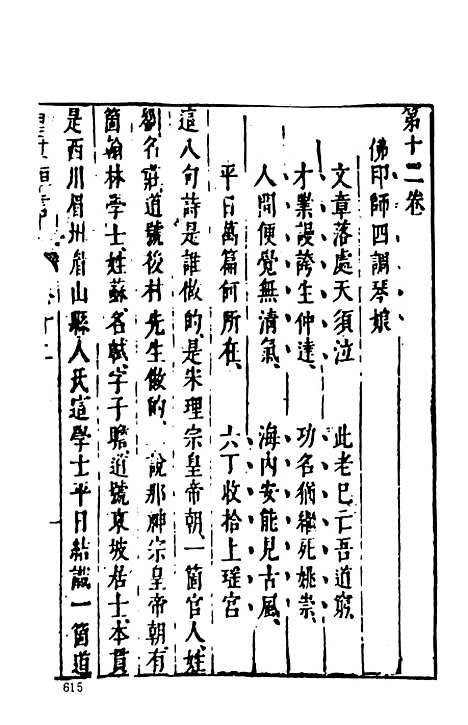 第十二卷
佛印師四調琴娘
文章落處天須泣　此老已亡吾道窮
才業謾誇生仲達　功名猶繼死姚崇
人間便覺無清氣　海內安能見古風
平日萬篇何所在　六丁收拾上瑤宮
這八句詩是誰做的是宋理宗皇帝朝一箇官人姓
劉名莊道號後村先生做的　說那神宗皇帝朝有
箇翰林學士姓蘇名軾字子瞻道號東坡居士本貫
是西川眉州眉山縣人氏這學士平日結識一箇道
615